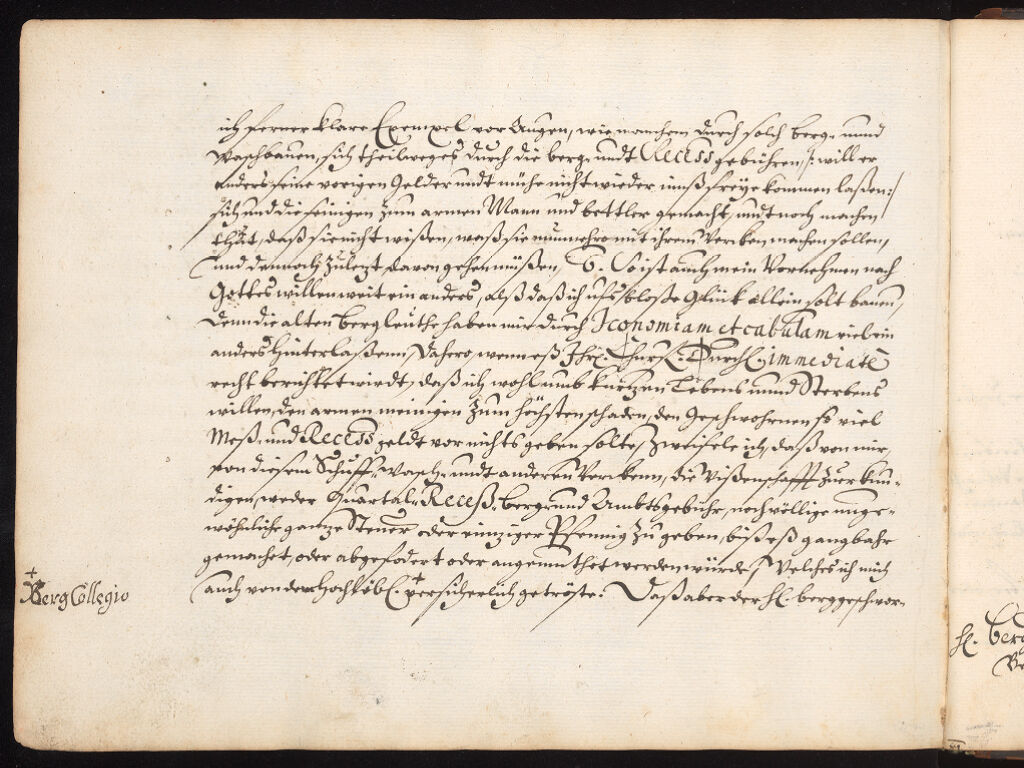 ich ferner klare Exempel vor Augen, wie manchem durch solch berg- unnd
Waschbauen, sich theilweges durch die berg- undt Recess gebühren, /: will er
anders seine vorigen Gelder undt mühe nicht wieder inns freÿe kommen laßen :/
sich und die seinigen zum armen Mann und bettler gemacht, undt noch machen
thut, daß sie nicht wißen, waß sie nunmehro mit ihrem Wercken machen sollen,
und dennoch zulezt davon gehen müßen, 6. So ist auch mein Vornehmen nach
Gottes willen weit ein anders, alß daß ich ufs bloße Glück allein solt bauen,
Denn die alten bergleuthe haben mir durch Iconomiam et cabulam viel ein
anders hinterlaßenn, Dahero, wenn eß Ihrl. Churfl. Durchl. immediatè
recht berichtet wirdt, daß ich wohl umb kurtzen Lebens unnd Sterbens
willen, den armen meinigen zum höchsten schaden, den Geschwohrnen so viel
Meß- und Recess geldt vor nichts geben solte, Zweifele ich, daß von mir,
von diesem Schuff- Wasch- undt anderen Wercken, die Wißenschafft zu erkun-
digen, weder Quartal- Receß- berg- und Ambtsgebühr, noch völlige unge-
wöhnliche gantze Steuer oder einziger Pfennig zu geben, biß eß gangbahr
gemachet, oder abgefodert oder angemuthet werden würde, Welches ich mich
auch von der Hochlöbl. + versicherlich getröste. Daß aber der H. berggeschwor-
+
Berg Collegio
H.